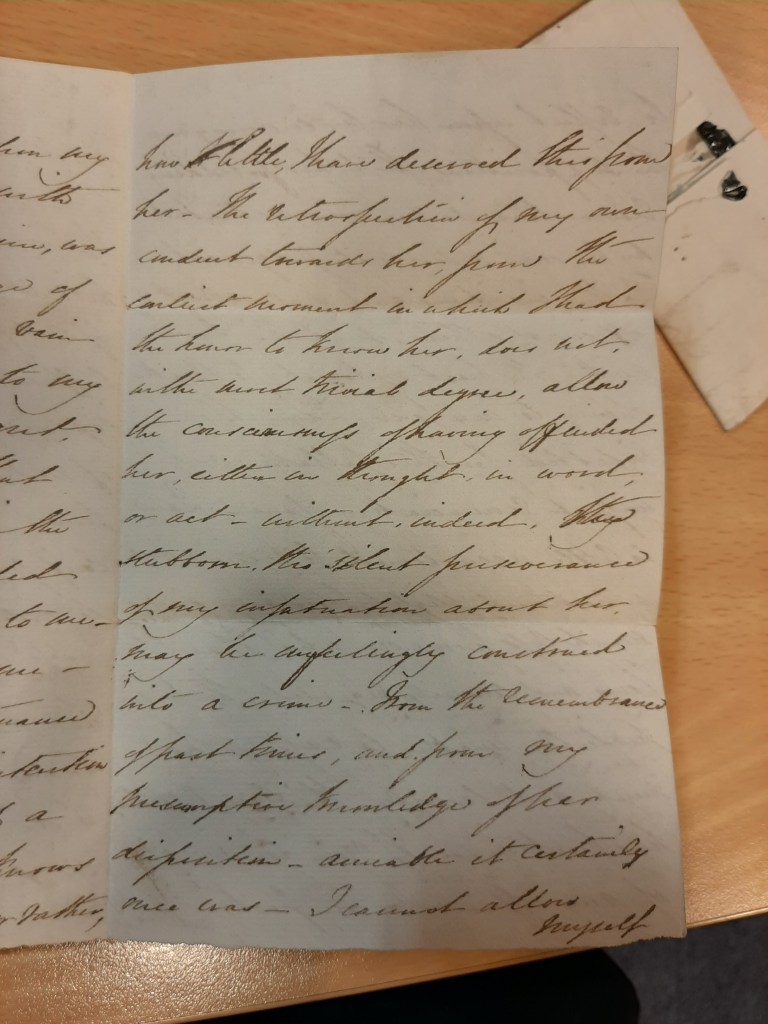 my
with
was
of
vain
to my
the
to me -
me -
a
knows
Father,
how little, I have deserved this from
her - The retrospection of my own
conduct towards her, from the
earliest moment in which I had
the honor to know her, does not,
in the most trivial degree, allow
the consciousness of having offended
her, either in thought, in word,
or act - without, indeed, the
stubborn, the silent perseverance
of my infatuation about her,
may be unfeelingly construed
into a crime - From the remembrance
of past times, and from my
presumptive knowledge of her
disposition - amiable it certainly
once was - I cannot allow
myself